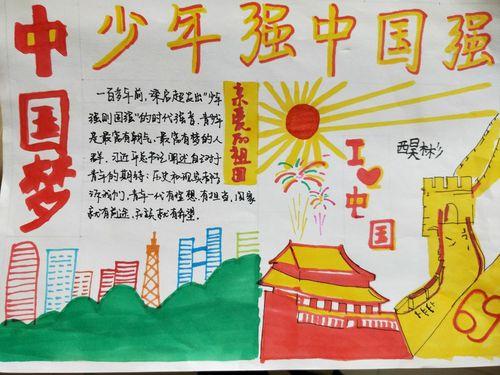 少年强中国强
中国梦
一百多年前,梁启超发出"少年
强则国强"的时代强音.青少年
是最富有朝气、最富有梦的人
群.习近平总书记阐述自己对于
青年的期待:历史和现实告诉
我们,青年一代有理想,有担当,国家
就有前途,民族就有希望.
亲爱的祖国
I
中
国
69